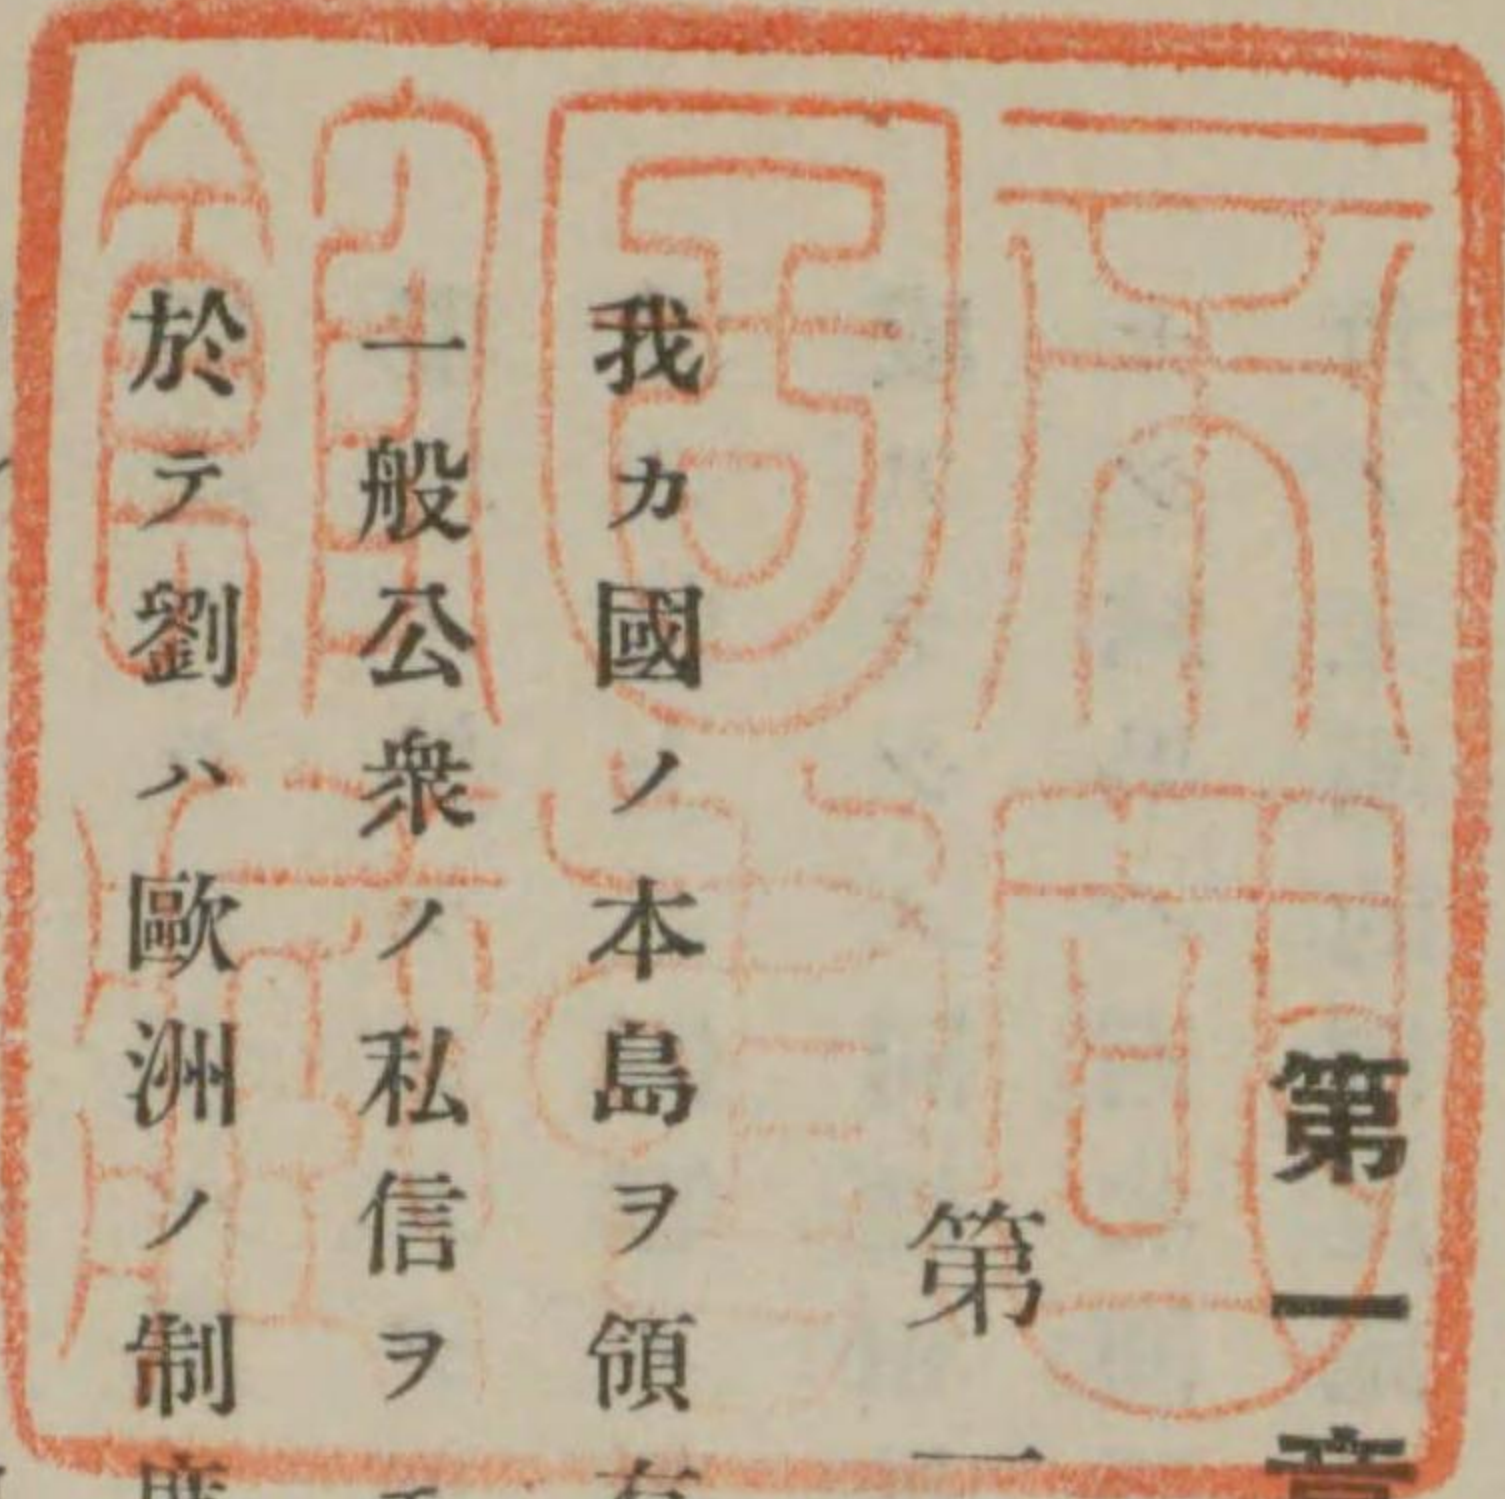 第一章
第一
我カ國ノ本島ヲ領有
一般公衆ノ私信ヲ
於テ劉ハ歐洲ノ制度
帝國
圖書
館藏